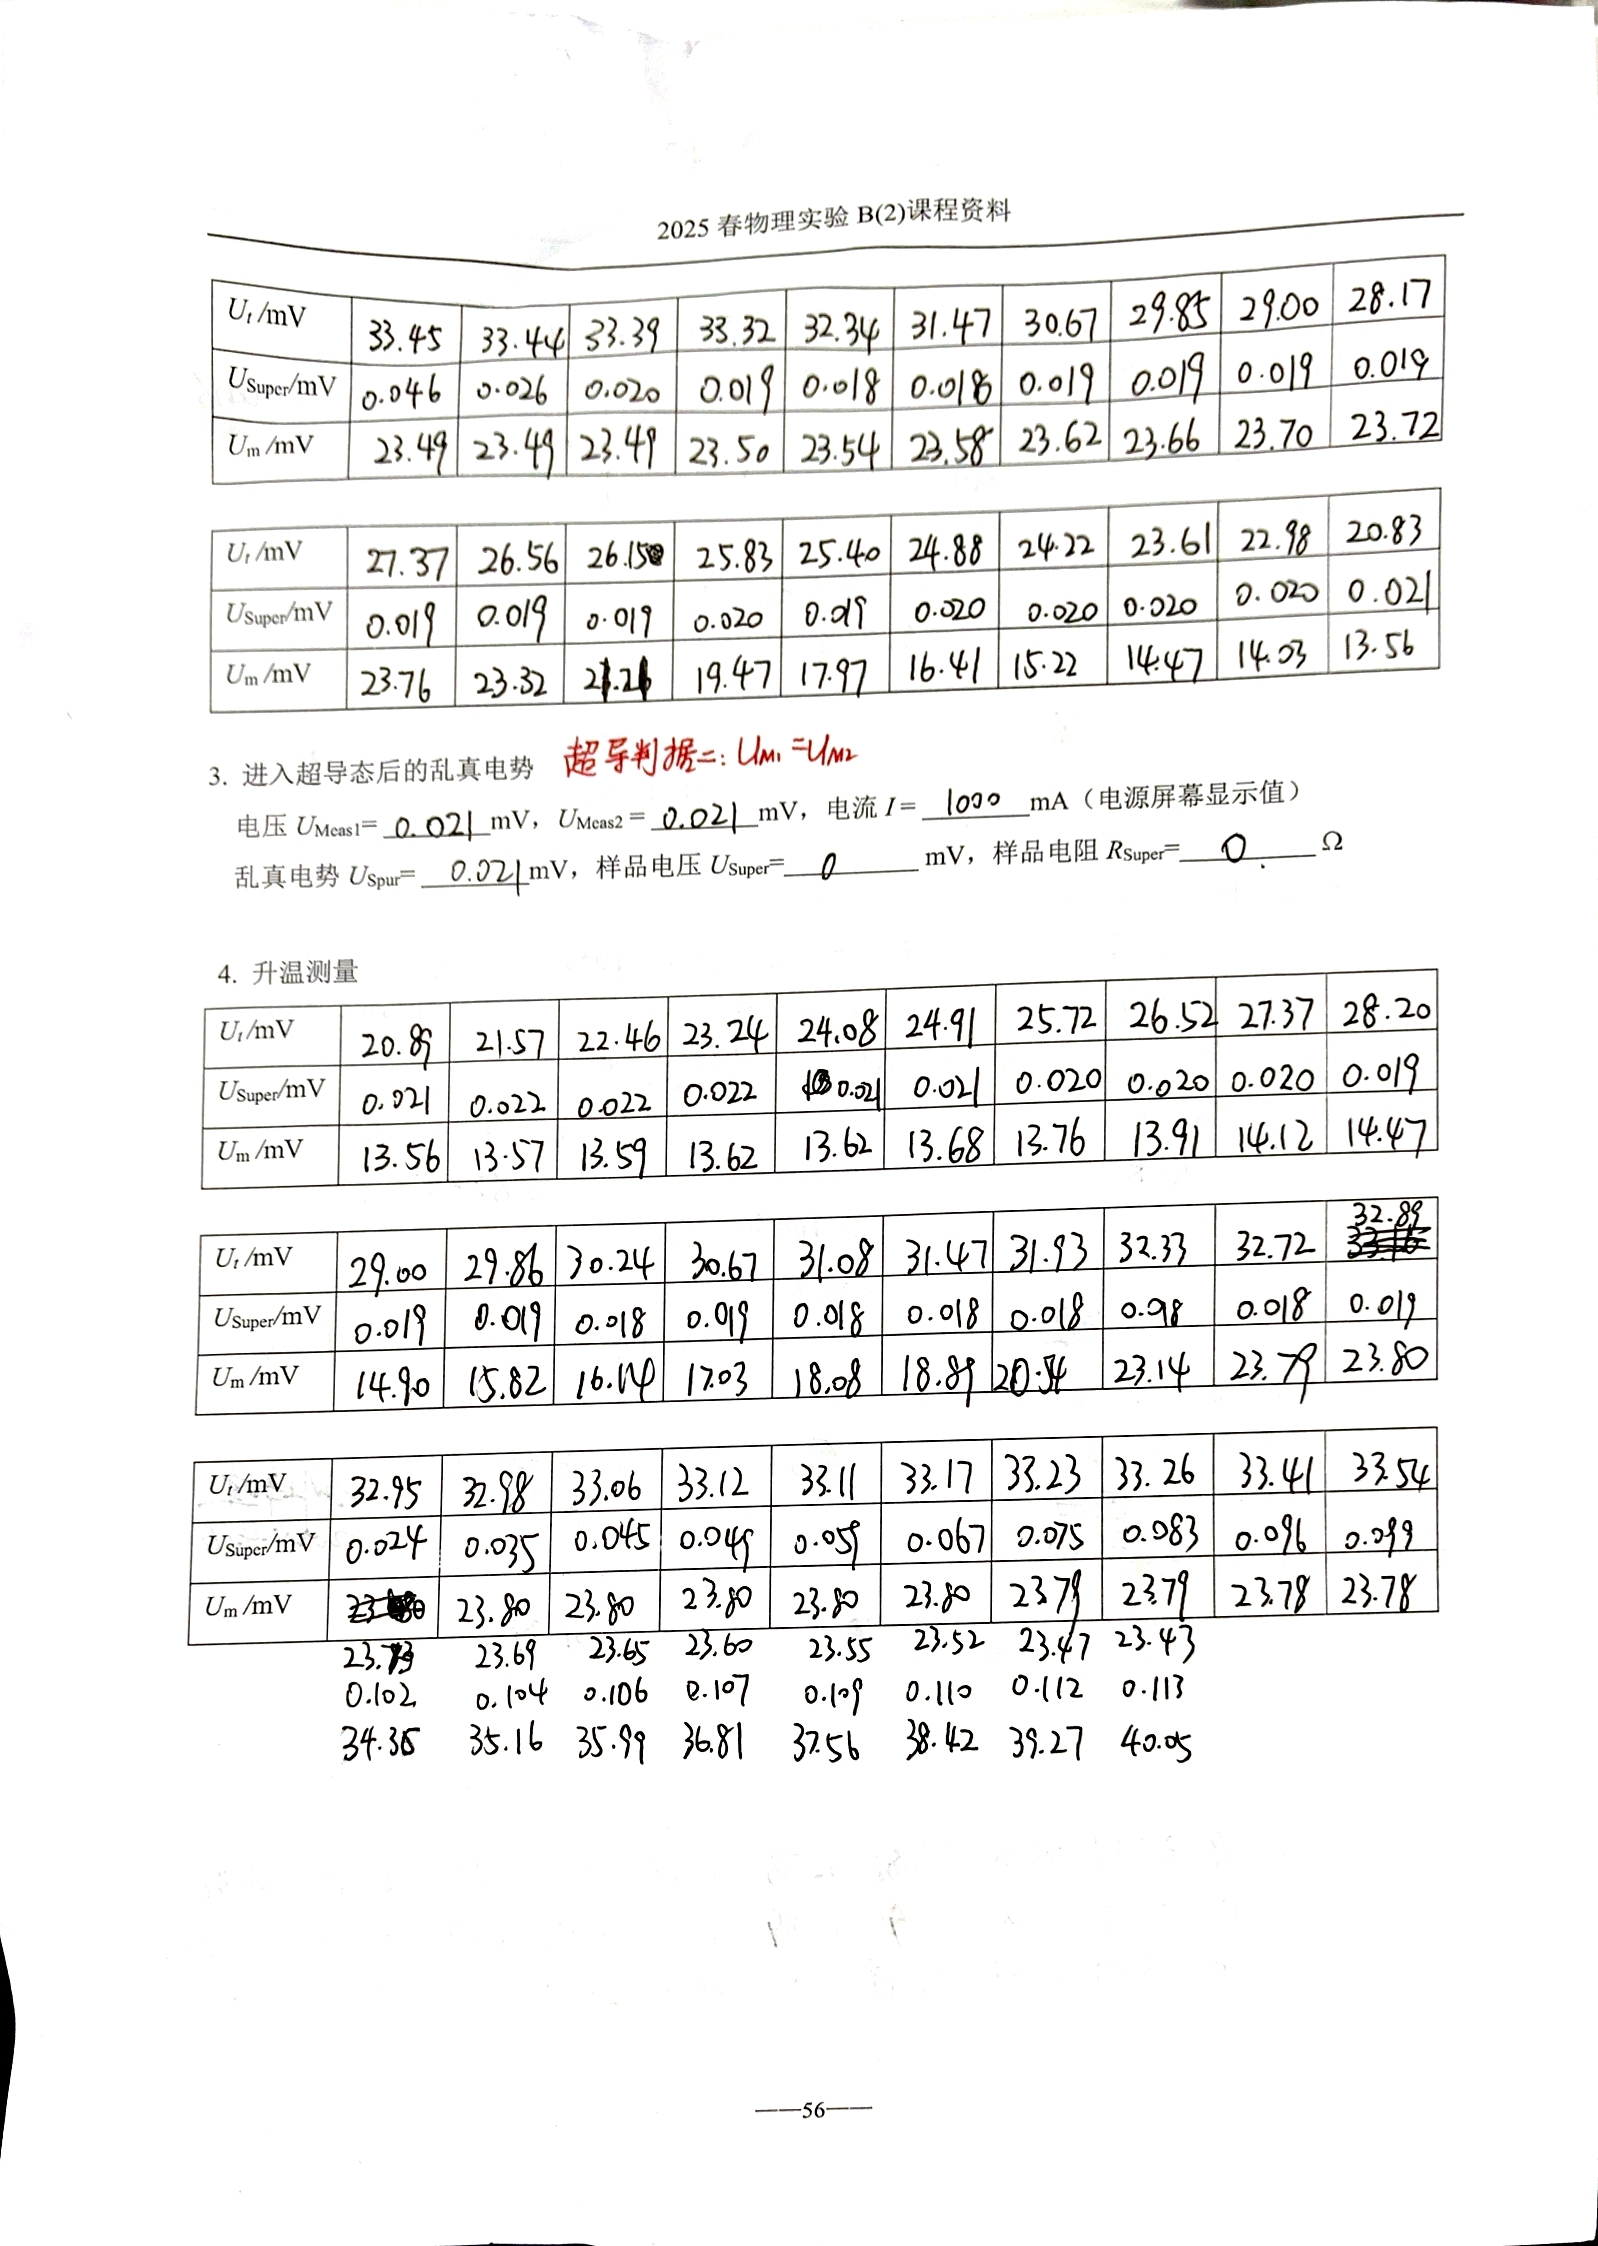 2025 春物理实验 B(2)课程资料
Ut /mV 33.45 33.44 33.39 33.32 32.34 31.47 30.67 29.85 29.00 28.17
USuper/mV 0.046 0.026 0.020 0.019 0.018 0.018 0.019 0.019 0.019 0.019
Um /mV 23.49 23.49 23.49 23.50 23.54 23.58 23.62 23.66 23.70 23.72
Ut /mV 27.37 26.56 26.15 25.83 25.40 24.88 24.22 23.61 22.98 20.83
USuper/mV 0.019 0.019 0.019 0.020 0.019 0.020 0.020 0.020 0.020 0.021
Um /mV 23.76 23.32 21.21 19.47 17.97 16.41 15.22 14.47 14.03 13.56
超导判据二: UM1 = UM2
3. 进入超导态后的乱真电势
电压 UMeas1= 0.021 mV, UMeas2 = 0.021 mV, 电流 I= 1000 mA（电源屏幕显示值）
乱真电势 USpur= 0.021 mV, 样品电压 USuper= 0 mV, 样品电阻 RSuper= 0 Ω
4. 升温测量
Ut /mV 20.89 21.57 22.46 23.24 24.08 24.91 25.72 26.52 27.37 28.20
USuper/mV 0.021 0.022 0.022 0.022 0.021 0.021 0.020 0.020 0.020 0.019
Um /mV 13.56 13.57 13.59 13.62 13.62 13.68 13.76 13.91 14.12 14.47
Ut /mV 29.00 29.86 30.24 30.67 31.08 31.47 31.93 32.33 32.72 32.89
USuper/mV 0.019 0.019 0.018 0.019 0.018 0.018 0.018 0.018 0.019
Um /mV 14.90 15.82 17.03 18.08 18.89 20.54 23.14 23.79 23.80
Ut /mV 32.95 32.98 33.06 33.12 33.11 33.17 33.23 33.26 33.41 33.54
USuper/mV 0.024 0.035 0.045 0.049 0.059 0.067 0.075 0.083 0.096 0.099
Um /mV 23.80 23.80 23.80 23.80 23.80 23.79 23.79 23.78 23.78
23.73 23.69 23.65 23.60 23.55 23.52 23.47 23.43
0.102 0.104 0.106 0.107 0.109 0.110 0.112 0.113
34.35 35.16 35.99 36.81 37.56 38.42 39.27 40.05
——56——